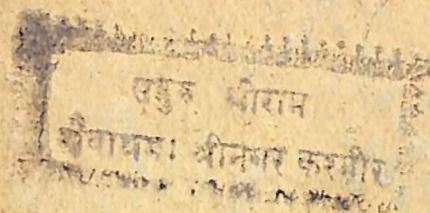 श्रीराम
शैवाश्रम। श्रीनगर कश्मीर